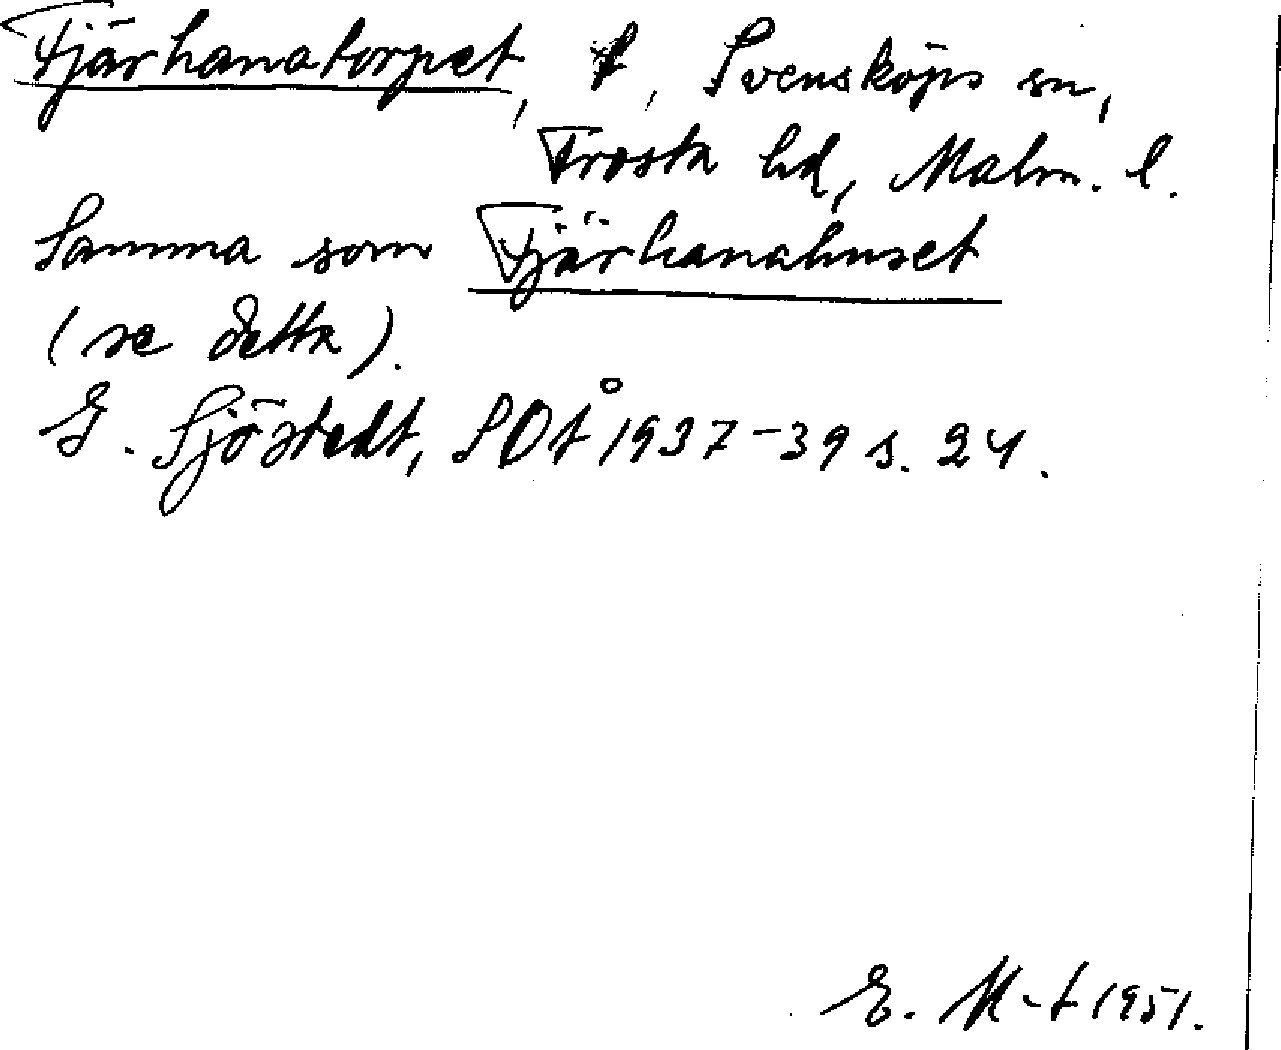 Fjärhanatorpet, t, Svensköps sn,
Frosta hd, Malm. l.
Samma som Fjärhanahuset
(se detta).
G. Sjöstedt, SOÅ 1937-39 s. 24.
E. M-t 1951.